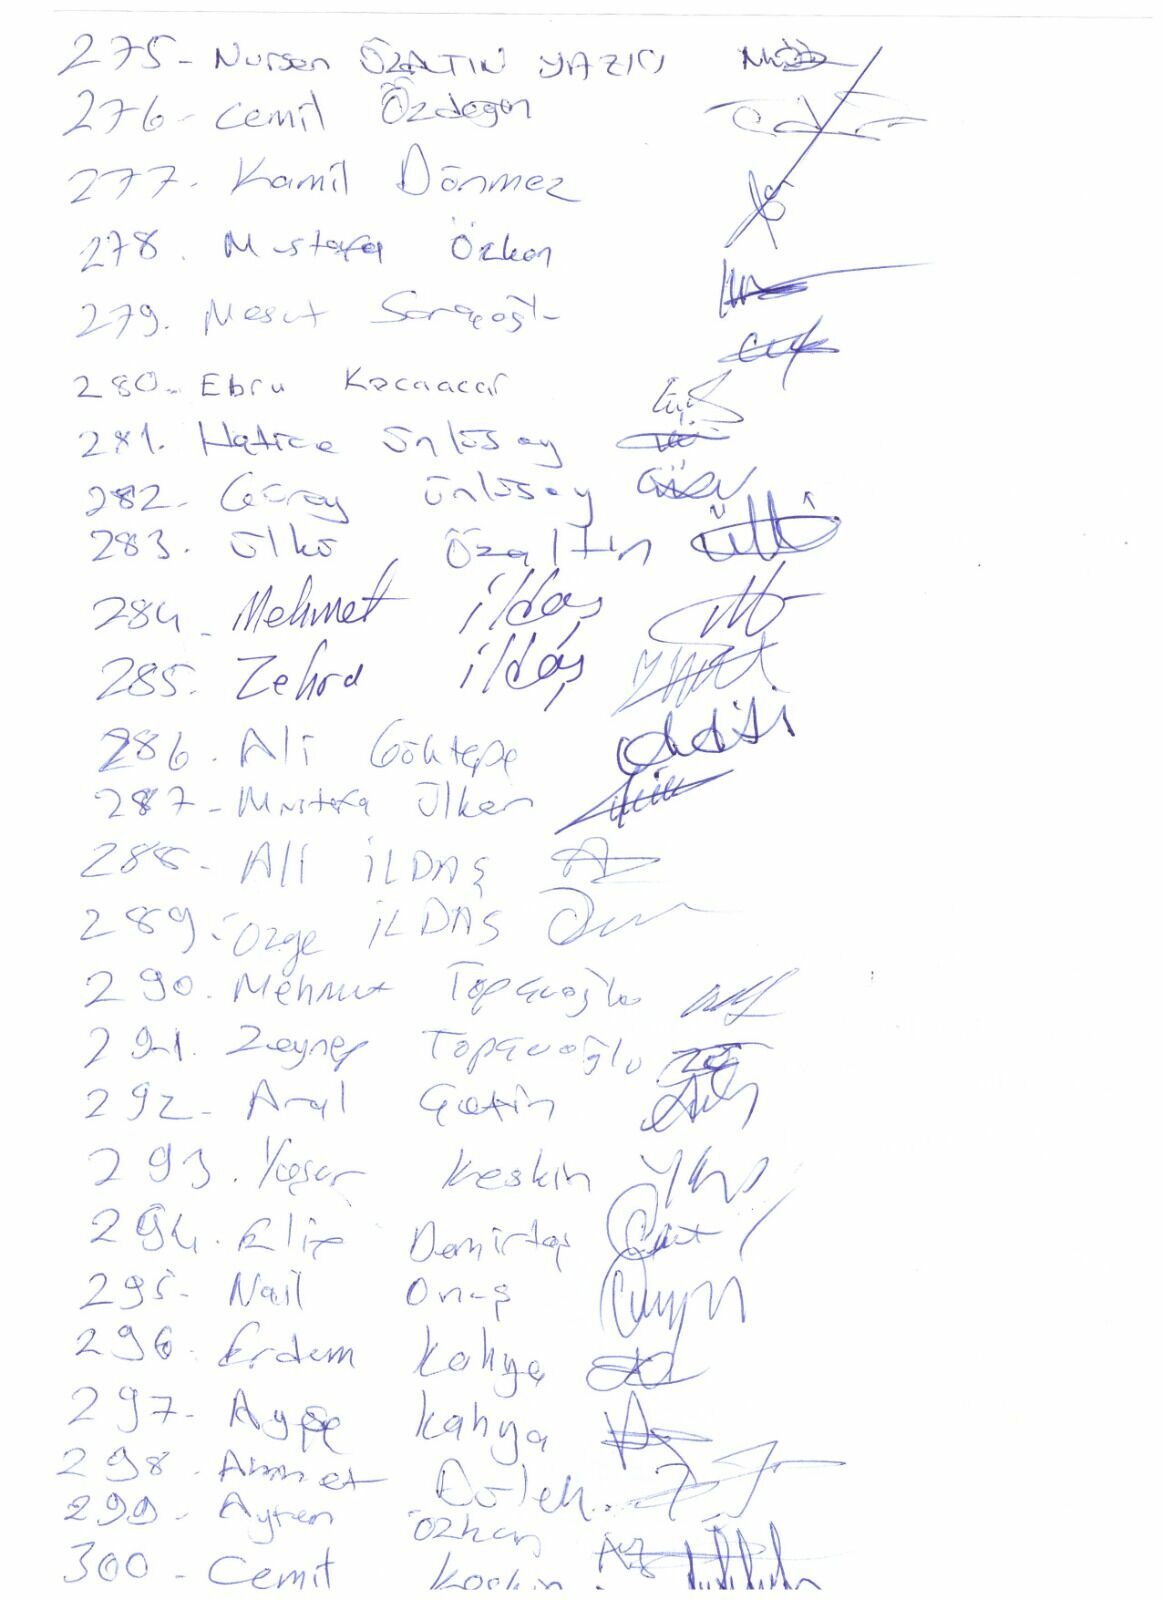 275- Nursen ÖZALTIN YAZICI
276- Cemil Özdegen
277- Kamil Dönmez
278. Mustafa Özkan
279. Mesut Saraçoğlu
280- Ebru Kocaacar
281. Hatice Ünlüsoy
282- Güray Ünlüsoy
283. Ülkü Özaltın
284- Mehmet ildaş
285. Zehra ildaş
286. Ali Göktepe
287- Mustafa Ülker
288- Ali iLDAŞ
289- özge iLDAŞ
290. Mehmet Topçuoğlu
291. Zeynep Topçuoğlu
292- Anıl Çetin
293. Yaşar Keskin
294. Elif Demirtaş
295- Nail
296- Erdem Kahya
297- Ayşe Kahya
298- Ahmet Dölek
299- Ayren özkan
300- Cemil Keskin